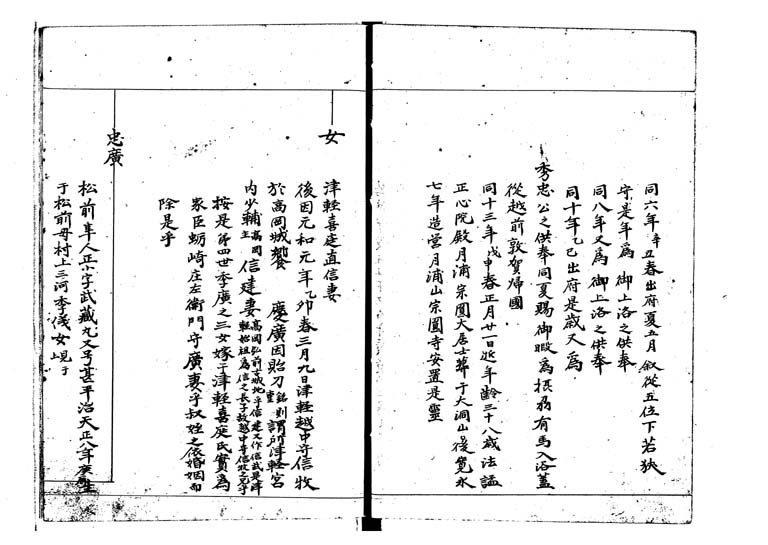 同六年辛丑春出府夏五月 叙從五位下若狹
守是年爲 御上洛之供奉
同八年又爲 御上洛之供奉
同十年乙巳出府是歲又爲
秀忠公之供奉同夏賜御暇爲攝刕有馬入浴蓋
從越前敦賀歸國
同十三年戊申春正月廿一日逝年齡三十八歲法謚
正心院殿月浦宗圓大居士葬于大洞山後寬永
七年造營月浦山宗圓寺安置是靈
女
津輕喜庭直信妻
後因元和元年乙卯春三月九日津輕越中守信牧
於高岡城饗 慶廣因貽刀銘則重謂所津輕宮
内少輔高岡主信建妻
按是第四世季廣之三女嫁于津輕喜庭氏實爲
家臣蛎崎庄左衛門守廣妻乎叔姪之依婚姻而
除是乎
忠廣
松前隼人正小字武藏丸又号甚平治天正八年庚辰生
于松前母村上三河季儀女上見于